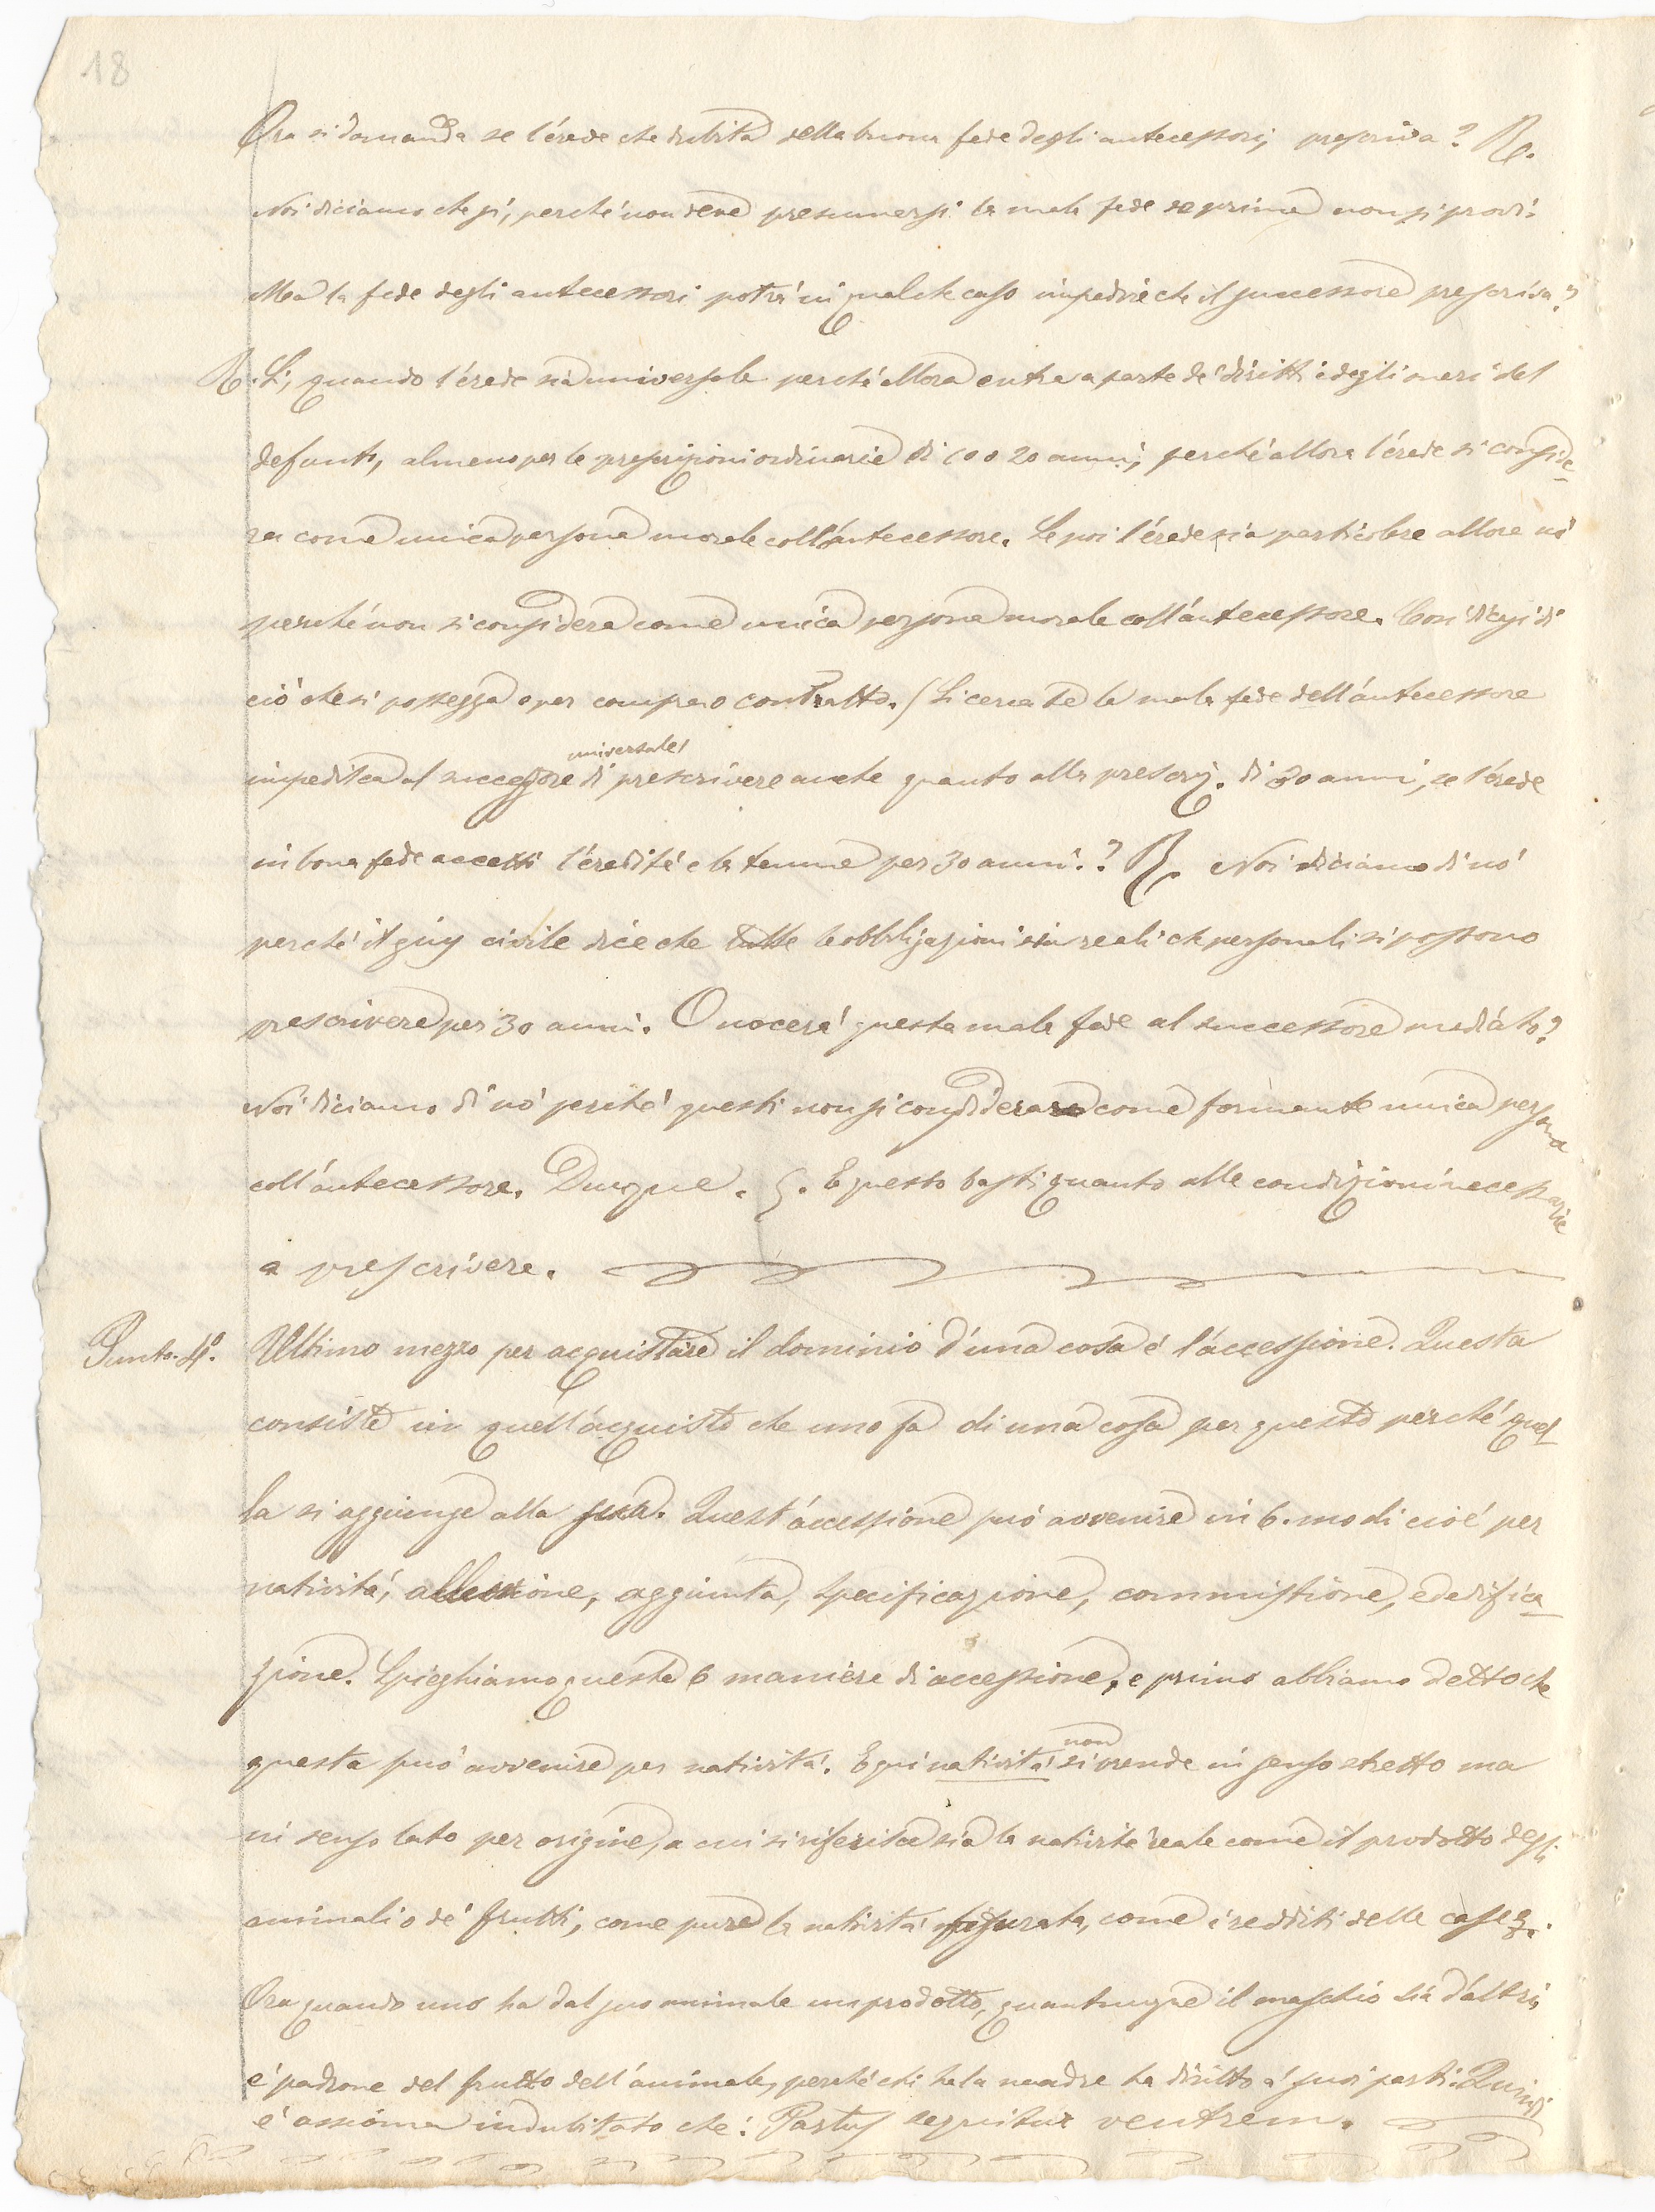 18
Ora si domanda se l'erede che dubita della buona fede degli antecessori, prescriva? R.
Noi diciamo che sì, perché non deve presumersi la mala fede se prima non si provi.
Ma la fede degli antecessori potrà in qualche caso impedire che il successore prescriva?
R. Sì, quando l'erede sia universale perché allora entra a parte de' diritti e degli oneri del
defunto, almeno per le prescrizioni ordinarie di 10 o 20 anni, perché allora l'erede si conside-
ra come unica persona morale coll'antecessore. Se poi l'erede sia particolare allora nò
perché non si considera come unica persona morale coll'antecessore. Così dicasi di
ciò che si possegga o per compra o contratto. Si cerca se la mala fede dell'antecessore
impedisca al successore universale di prescrivere anche quanto alla prescriz. di 30 anni, se l'erede
in bona fede accetti l'eredità e la tenne per 30 anni.? R. Noi diciamo di nò
perché il gius civile dice che tutte le obbligazioni sia reali che personali si possono
prescrivere per 30 anni. O nocerà questa mala fede al successore mediato?
Noi diciamo di nò perché questi non si considera come formante unica persona
coll'antecessore. Dunque. §. E questo basti quanto alle condizioni necessarie
a prescrivere.
Punto. 4º. Ultimo mezzo per acquistare il dominio d'una cosa é l'accessione. Questa
consiste in quell'acquisto che uno fa di una cosa per questo perché quel-
la si aggiunge alla sua. Quest'accessione può avvenire in 6. modi cioé per
natività, alluvione, aggiunta, specificazione, commistione, ed edifica-
zione. Spieghiamo queste 6 maniere di accessione, e primo abbiamo detto che
questa può avvenire per natività. E quì natività non si prende in senso stretto ma
in senso lato per origine, a cui si riferisce sia la natività reale come il prodotto degli
animali o de' frutti, come pure la natività figurata, come i redditi delle case
Ora quando uno ha dal suo animale un prodotto, quantunque il maschio sia d'altri,
é padrone del frutto dell'animale, perché chi ha la madre ha diritto a' suoi parti. Quindi
é assioma indubitato che: Partus sequitur ventrem.